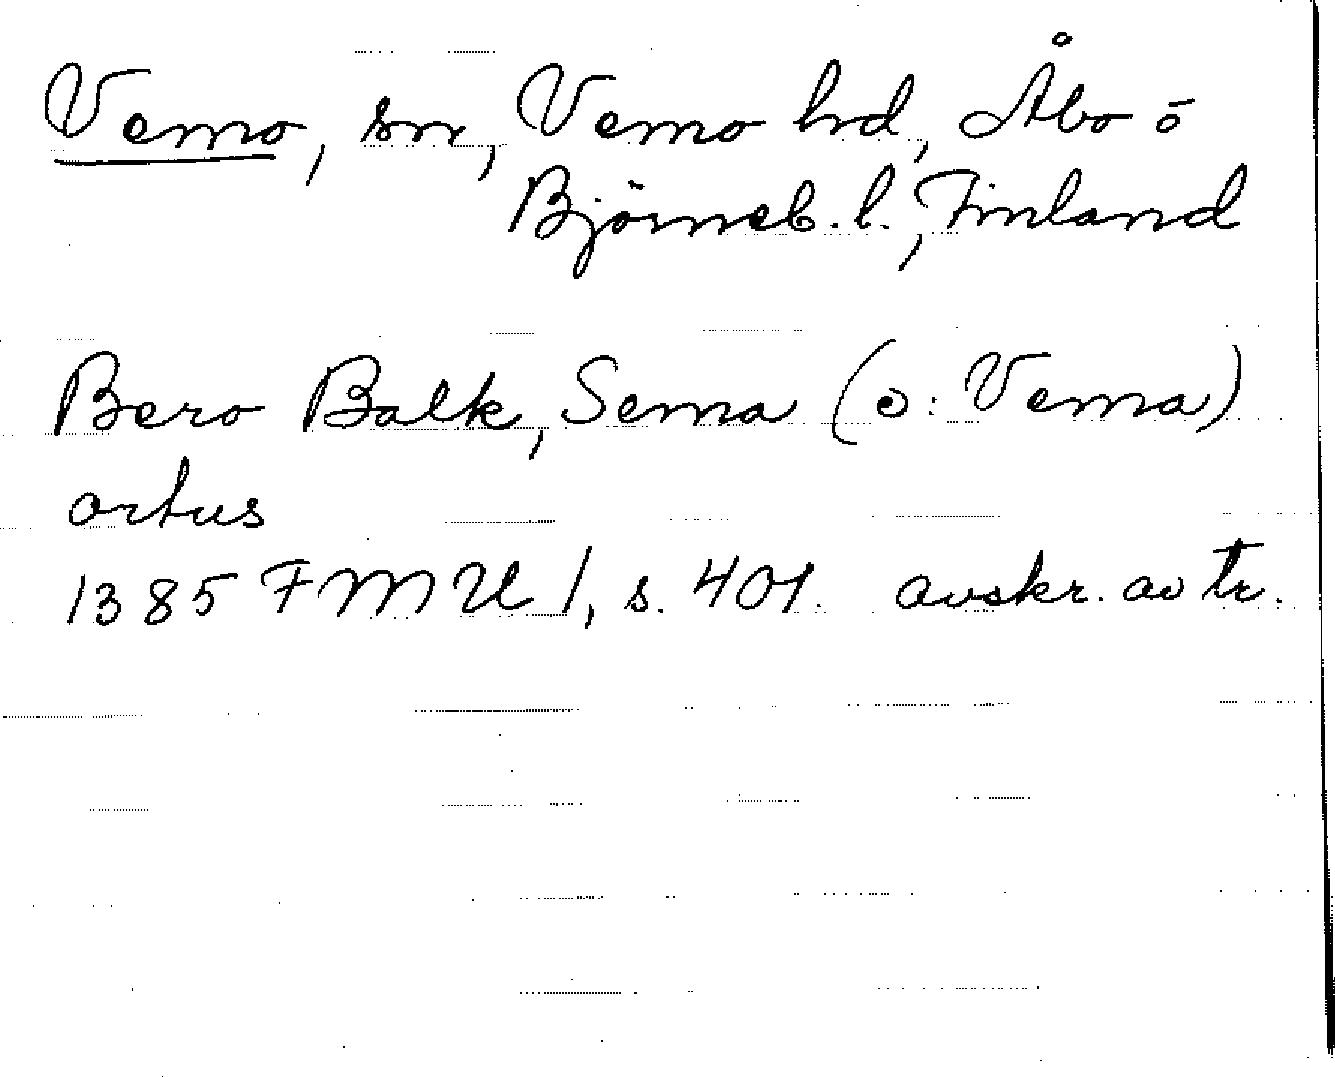 Vemo, sn, Vemo hd, Åbo o
Björneb. l., Finland
Bero Balk, Sema (ɔ: Vema)
ortus
1385 FMU 1, s. 401. avskr. av tr.